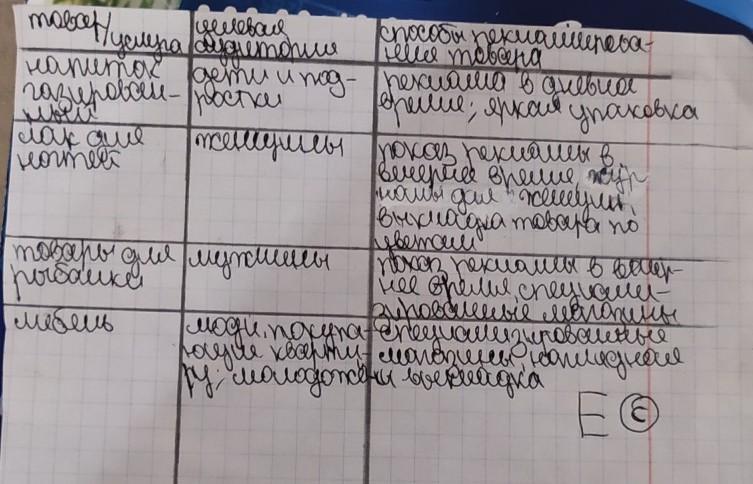 товар/услуга
целевая
аудитория
способы рекламирова-
ния товара
напиток
газирован-
ный
дети и под-
ростки
реклама в дневное
время; яркая упаковка
лак для
ногтей
женщины
показ рекламы в
вечернее время, жур-
налы для женщин,
выкладка товара по
цветам
товары для
рыбалки
мужчины
показ рекламы в вечер-
нее время, специали-
зированные магазины
мебель
люди, покупа-
ющие кварти-
ру; молодожёны
специализированные
магазины, наглядная
выкладка
Е є